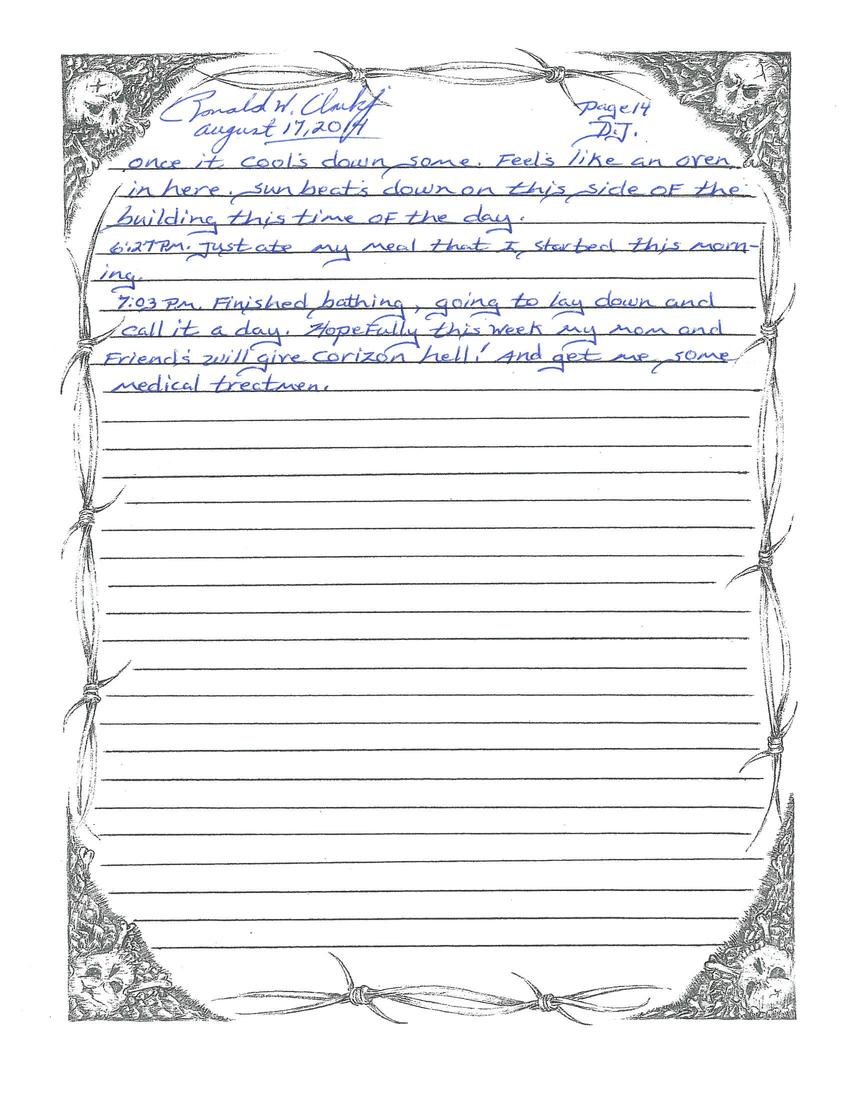 Ronald W. Clark Jr
August 17, 2014
Page 14
D.J.
once it cool's down some. Feel's like an oven
in here. Sun beat's down on this side of the
building this time of the day.
6:27 PM. Just ate my meal that I started this morn-
ing.
7:03 PM. Finished bathing, going to lay down and
call it a day. Hopefully this week my mom and
Friend's will give Corizon hell! And get me some
medical treatmen.